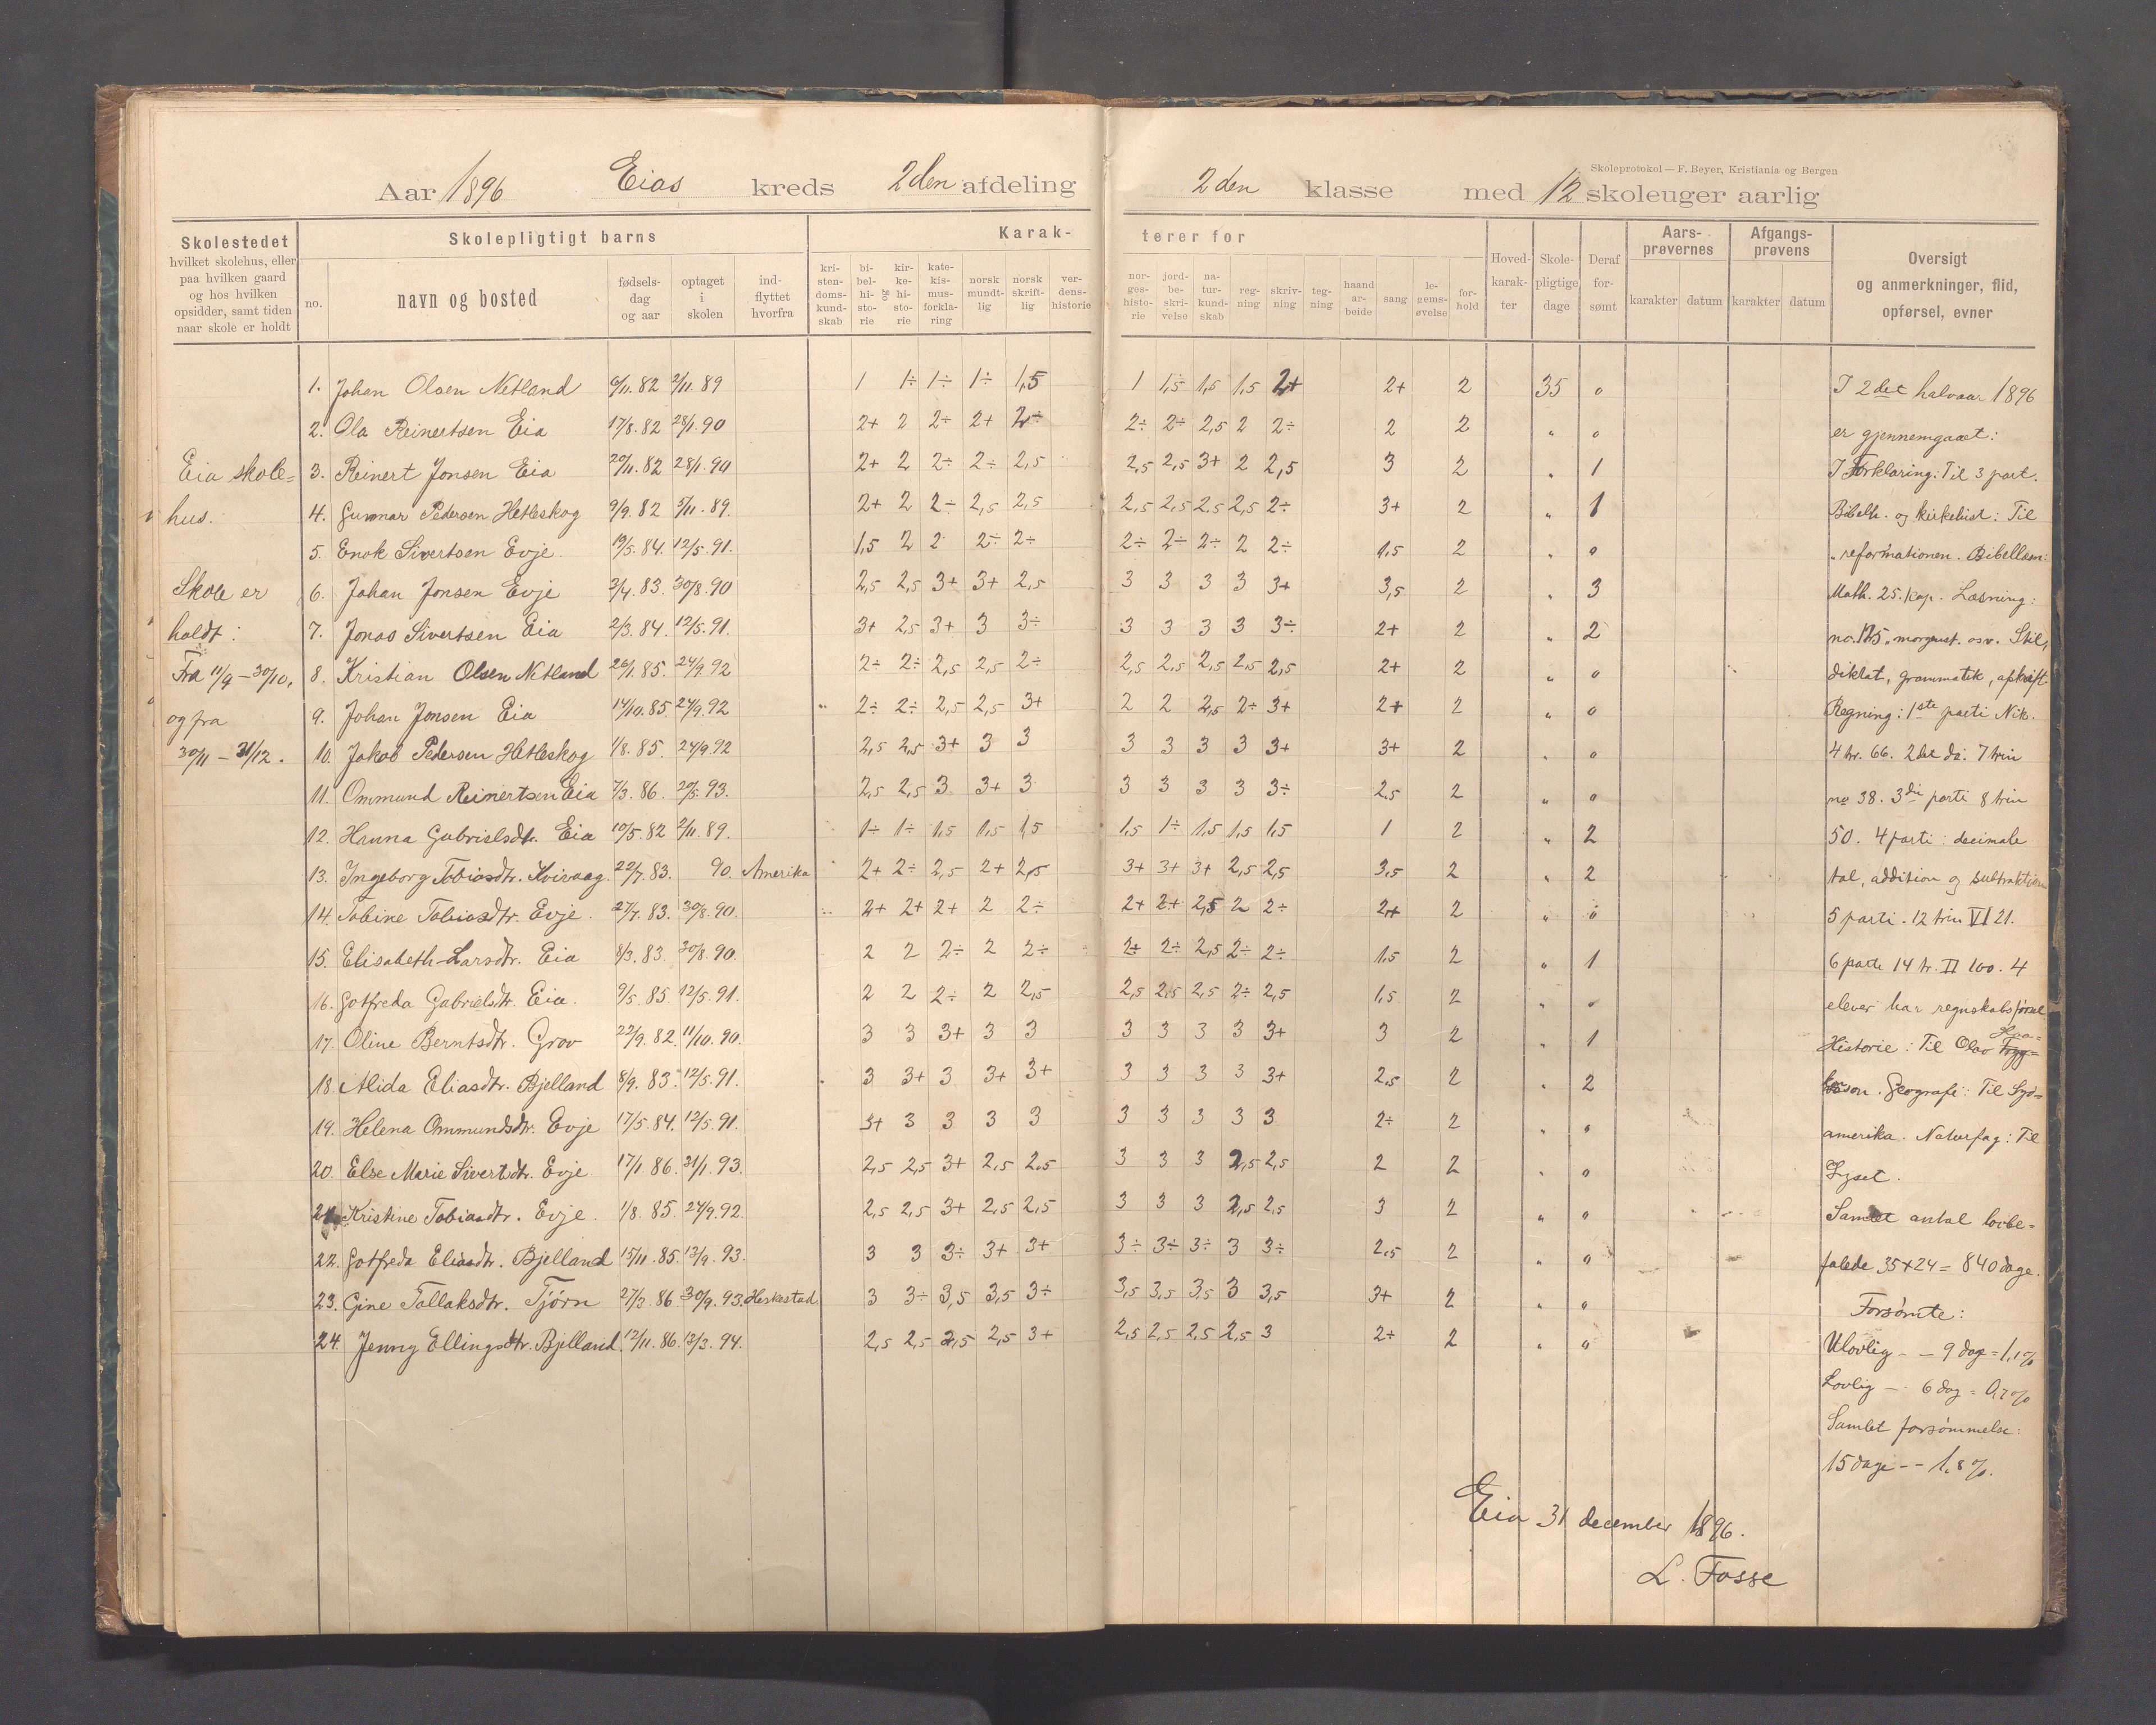 Skoleprotokol — F. Beyer, Kristiania og Bergen
Aar 1896 Eias kreds 2den afdeling 2den klasse med 12 skoleuger aarlig
Skolestedet
hvilket skolehus, eller
paa hvilken gaard
og hos hvilken
opsidder, samt tiden
naar skole er holdt
Skolepligtigt barns
no.
navn og bosted
fødsels-
dag
og aar
optaget
i
skolen
ind-
flyttet
hvorfra
Karak-
terer for
kri-
sten-
doms-
kund-
skab
bi-
bel-
hi-
sto-
rie
og
kir-
ke-
hi-
sto-
rie
kate-
kis-
mus-
forkla-
ring
norsk
mundt-
lig
norsk
skrift-
lig
ver-
dens-
historie
nor-
ges-
histo-
rie
jord-
be-
skri-
velse
na-
tur-
kund-
skab
reg-
ning
skriv-
ning
teg-
ning
haand
ar-
beide
sang
le-
gems-
øvelse
for-
hold
Hoved-
karak-
ter
Skole-
pligtige
dage
Deraf
for-
sømt
Aars-
prøvernes
karakter datum
Afgangs-
prøvens
karakter datum
Oversigt
og anmerkninger, flid,
opførsel, evner
Eia skole-
hus.
Skole er
holdt:
Fra 11/9 – 30/10,
og fra
30/11 – 31/12.
1. Johan Olsen Netland 6/11. 82 2/11 89 1 1÷ 1÷ 1÷ 1,5 1 1,5 1,5 1,5 2+ 2+ 2 35 0
2. Ola Reinertsen Eia 17/8. 82 28/1. 90 2+ 2 2÷ 2+ 2÷ 2÷ 2÷ 2,5 2 2÷ 2 2 " 0
3. Reinert Jonsen Eia 20/11. 82 28/1. 90 2+ 2 2÷ 2÷ 2,5 2,5 2,5 3+ 2 2,5 3 2 " 1
4. Gunnar Pedersen Hetleskog 9/9. 82 5/11. 89. 2+ 2 2÷ 2,5 2,5 2,5 2,5 2,5 2,5 2÷ 3+ 2 " 1
5. Enok Sivertsen Evje. 19/5. 84. 12/5. 91. 1,5 2 2 2÷ 2÷ 2÷ 2÷ 2÷ 2 2÷ 1,5 2 " 0
6. Johan Jonsen Evje 3/4. 83. 30/8. 90 2,5 2,5 3+ 3+ 2,5 3 3 3 3 3+ 3,5 2 " 3
7. Jonas Sivertsen Eia 2/3. 84. 12/5. 91. 3+ 2,5 3+ 3 3÷ 3 3 3 3 3÷ 2+ 2 " 2
8. Kristian Olsen Netland 26/1. 85. 24/9. 92 2÷ 2÷ 2,5 2,5 2÷ 2,5 2,5 2,5 2,5 2,5 2+ 2 " 0
9. Johan Jonsen Eia 14/10. 85. 24/9. 92 2÷ 2÷ 2,5 2,5 3+ 2 2 2,5 2÷ 3+ 2+ 2 " 0
10. Jakob Pedersen Hetleskog 1/8. 85. 24/9. 92 2,5 2,5 3+ 3 3 3 3 3 3 3+ 3+ 2 " 0
11. Ommund Reinertsen Eia 7/3. 86. 20/5. 93. 2,5 2,5 3 3+ 3 3 3 3 3 3÷ 2,5 2 " 0
12. Hanna Gabrielsdtr. Eia 10/5. 82 2/11. 89. 1÷ 1÷ 1,5 1,5 1,5 1,5 1÷ 1,5 1,5 1,5 1 2 " 2
13. Ingeborg Tobiasdtr. Kvivaag. 22/7. 83. 90. Amerika 2+ 2÷ 2,5 2+ 2,5 3+ 3+ 3+ 2,5 2,5 3,5 2 " 2
14. Tobine Tobiasdtr. Evje. 27/7. 83. 30/8. 90. 2+ 2+ 2+ 2 2÷ 2+ 2+ 2,5 2 2÷ 2+ 2 " 0
15. Elisabeth Larsdtr. Eia 8/3. 83. 30/8. 90. 2 2 2÷ 2 2÷ 2÷ 2÷ 2,5 2÷ 2÷ 1,5 2 " 1
16. Gotfreda Gabrielsdtr. Eia. 9/5. 85. 12/5. 91. 2 2 2÷ 2 2,5 2,5 2,5 2,5 2÷ 2,5 1,5 2 " 0
17. Oline Berntsdtr. Grov 22/9. 82. 11/10. 90. 3 3 3+ 3 3 3 3 3 3 3+ 3 2 " 1
18. Alida Eliasdtr. Bjelland 8/9. 83. 12/5. 91. 3 3+ 3 3+ 3+ 3 3 3 3 3+ 2,5 2 " 2
19. Helena Ommundsdtr. Evje 17/5. 84. 12/5. 91. 3+ 3 3 3 3 3 3 3 3 3 2÷ 2 " 0
20. Else Marie Sivertsdtr. Evje 17/1 86. 21/1. 93. 2,5 2,5 3+ 2,5 2,5 3 3 3 2,5 2,5 2 2 " 0
21. Kristine Tobiasdtr. Evje. 1/8. 85. 24/9. 92. 2,5 2,5 3+ 2,5 2,5 3 3 3 2,5 2,5 3 2 " 0
22. Gotfreda Eliasdtr. Bjelland 15/11. 85. 13/9. 93. 3 3 3÷ 3+ 3+ 3÷ 3÷ 3÷ 3 3÷ 2,5 2 " 0
23. Gine Tollaksdtr. Tjørn 27/2. 86. 30/9. 93. Heskestad. 3 3÷ 3,5 3,5 3÷ 3,5 3,5 3,5 3 3,5 3+ 2 " 0
24. Jenny Ellingsdtr. Bjelland. 12/11. 86. 13/3. 94. 2,5 2,5 2,5 2,5 3+ 2,5 2,5 2,5 2,5 3 2÷ 2 " 0
I 2det halvaar 1896
er gjennemgaaet:
I Forklaring: Til 3 part.
Bibelh. og kirkehist: Til
reformationen. Bibellæsn:
Math. 25. kap. Læsning:
no. 125 "morgnst. osv. Stil,
diktat, grammatik, afskrift
Regning: 1ste parti Nik.
4 tr. 66. 2det do: 7 trin
no 38. 3die parti 8 trin
50. 4 parti: decimale
tal, addition og subtraktion
5 parti. 12 trin VI 21.
6 parti 14 tr. II 100. 4
elever har regnskabsførsel
Historie: Til Olav
Geografi: Til Syd-
amerika. Naturfag: Til
Lyset.
Samlet antal lovbe-
falede 35 + 24 = 840 dage.
Forsømte:
Ulovlig - – 9 dage = 1,1 %
Lovlig – 6 dag = 0,7 %
Samlet forsømmelse:
15 dage -- 1,8 %.
Eia 31 december 1896.
L. Fosse